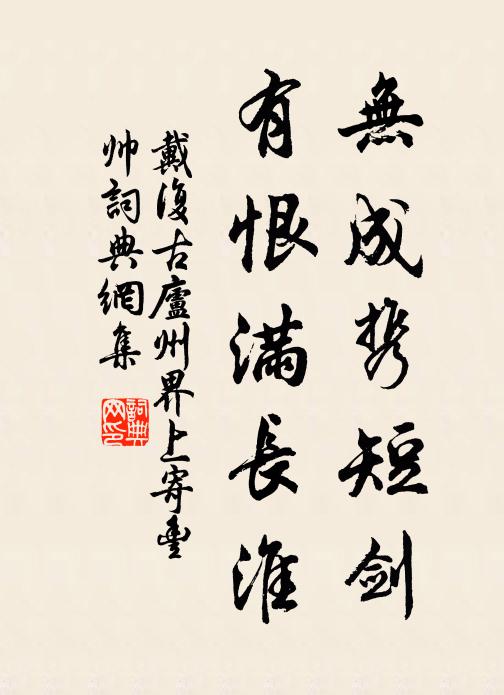 無成携短剑
有恨滿長淮
戴復古廬州界上寄豐
帅詞典網集
詞典网印